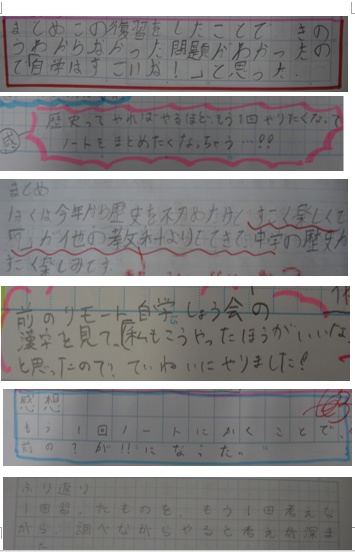 まとめ この復習をしたことで、きの
うわからなかった問題がわかったの
で「自学はすごいな！」と思った。
感
歴史ってやればやるほど、もう1回やりたくなって
ノートをまとめたくなっちゃう…??
まとめ
ぼくは今年から歴史を初めたけど、すごく楽しくて
が他の教科よりでてきて、中学の歴史が
すごく楽しみです
前のリモート自学しょう会の
漢字を見て、「私もこうやったほうがいいな」
と思ったので、ていねいにやりました!
感想
もう1回ノートにかくことで、
前の?が!!になった。
ふり返り
1回習ったものを、もう1回考えな
がら、調べながらやると考えが深ま